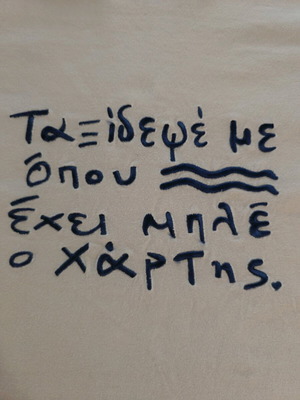 Ταξίδεψέ με
Όπου
Έχει μπλέ
ο χάρτης.